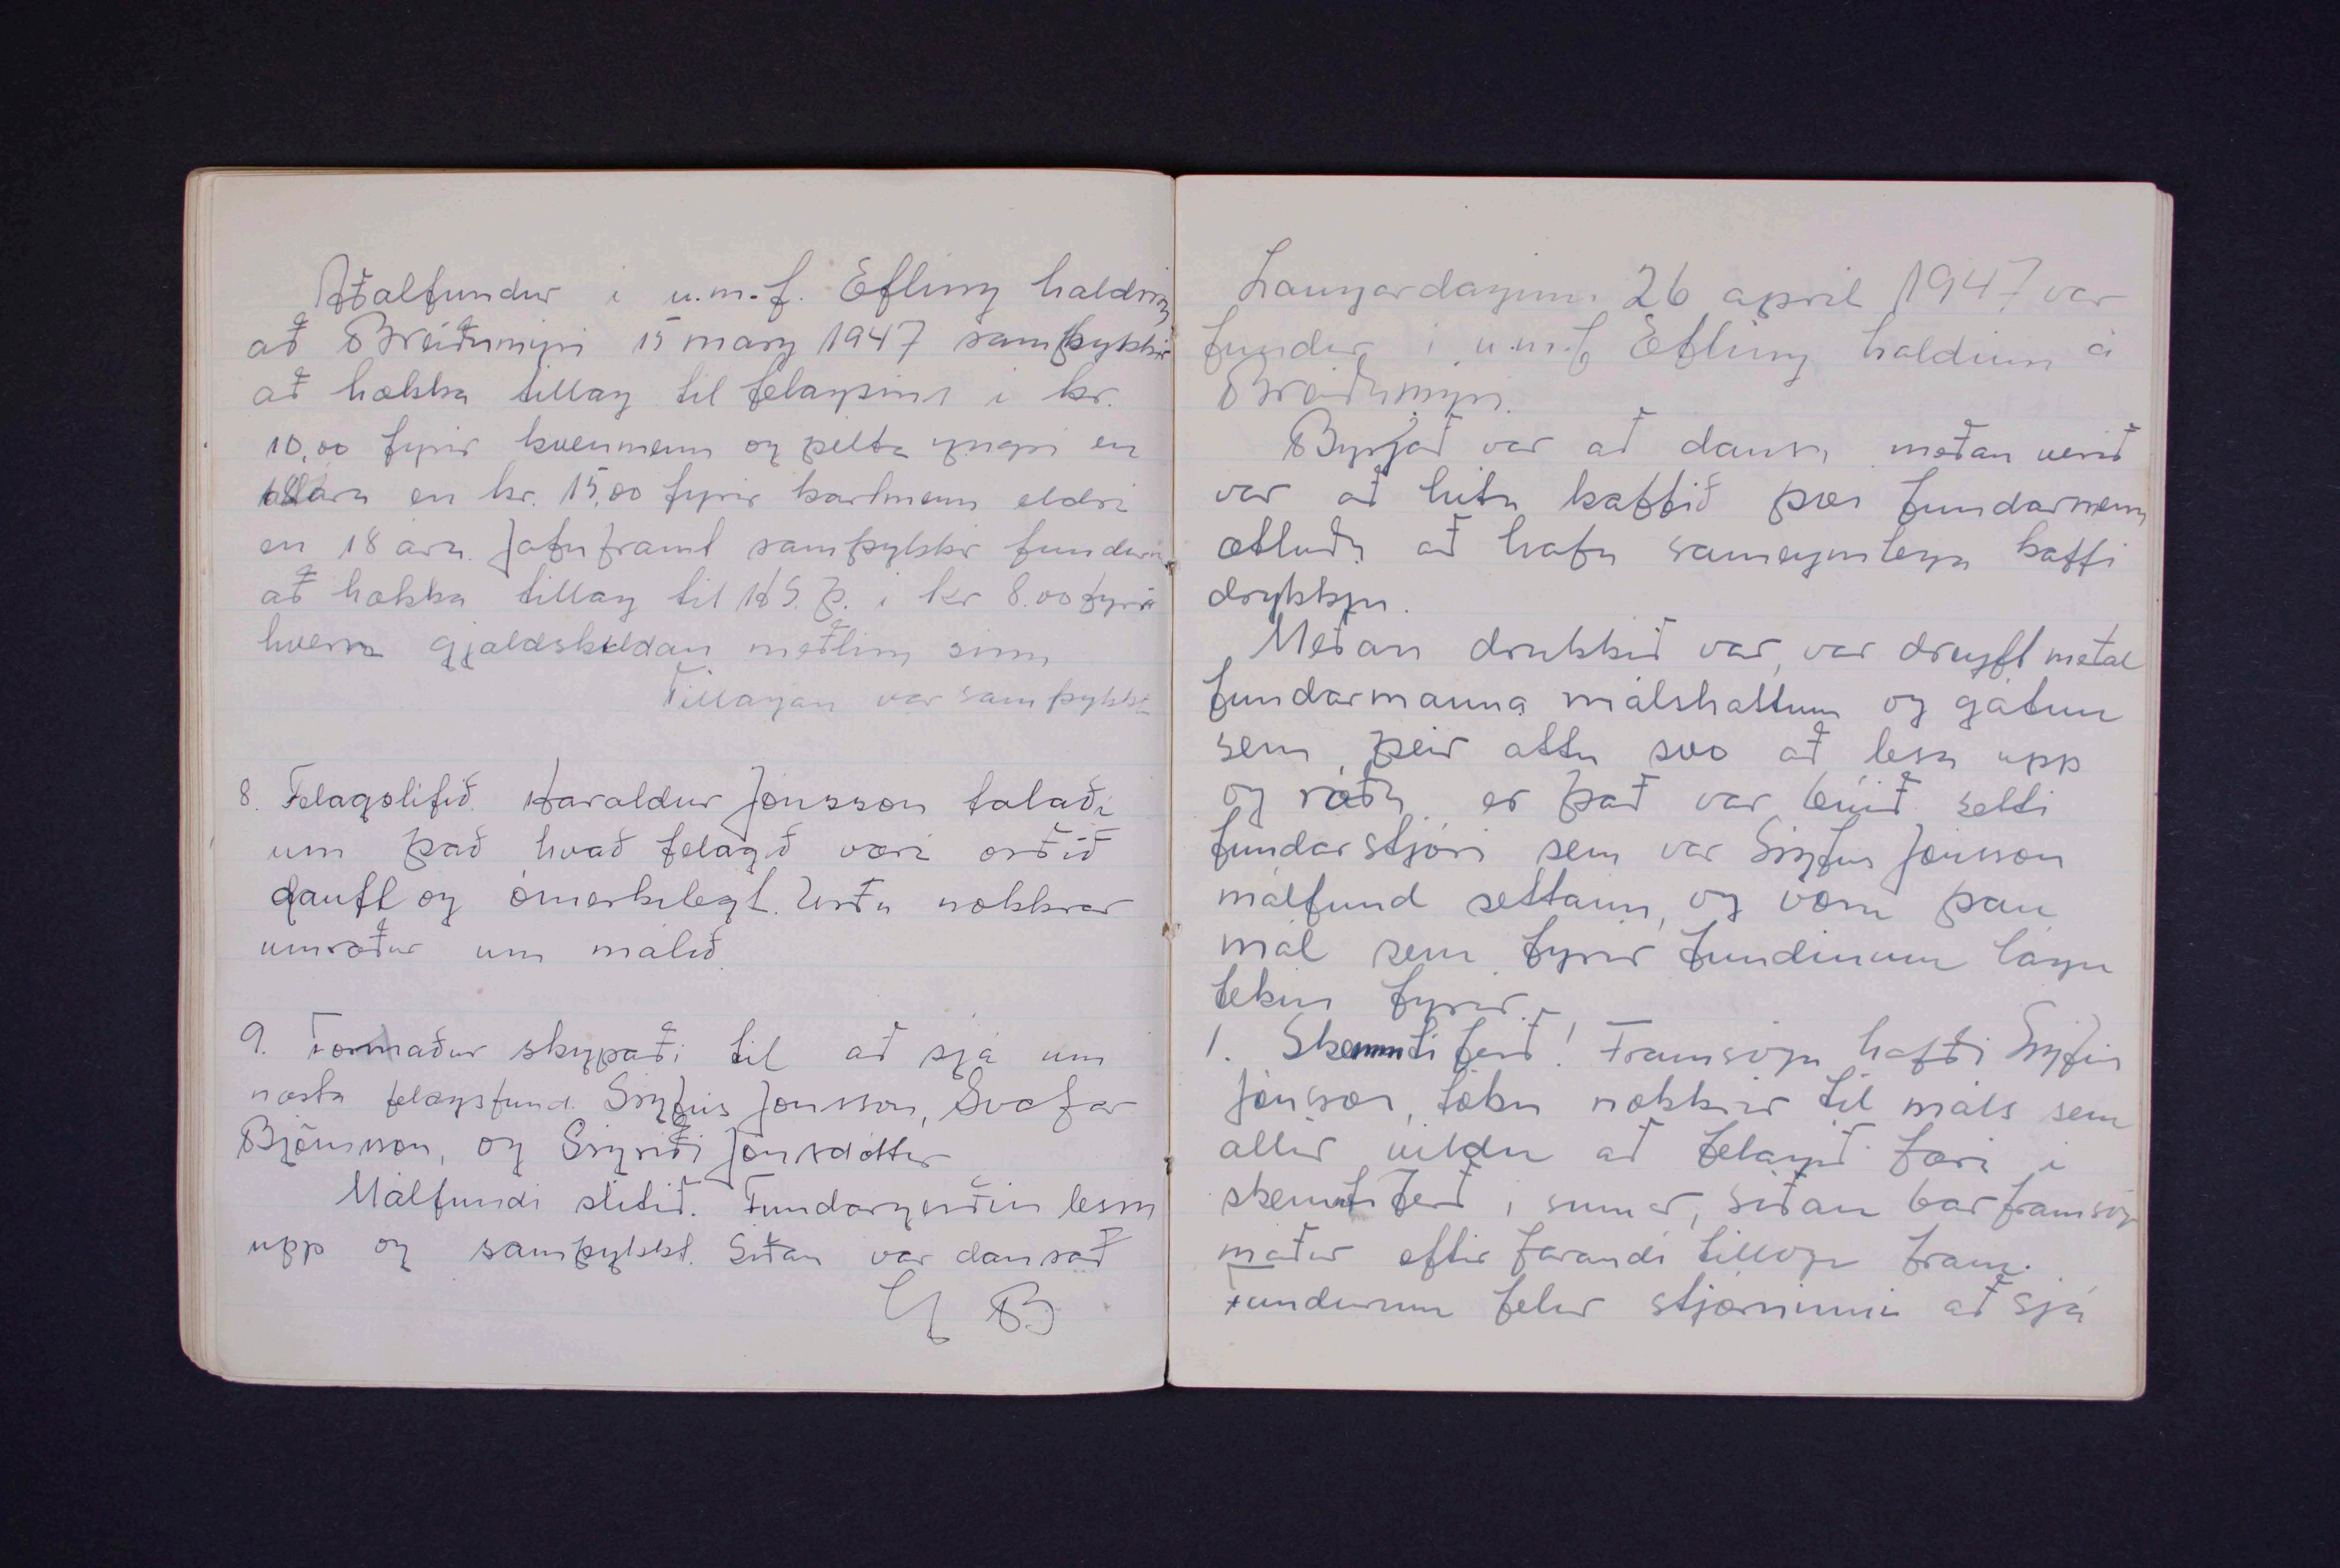 Aðalfundur i u.m.f. Efling haldin
að Breiðumýri 15 marz 1947 samþykkir
að hækka tillag til felagsins i kr.
10,00 fyrir kvenmenn og pilta yngri en
18 ára en kr. 15,00 fyrir karlmenn eldri
en 18 ara. Jafnframt samþykkir fundurin
að hækka tillag til H.S.Þ. i kr 8.00 fyrir
hvern gjaldskuldan meðlim sinn
Tillagan var samþykkt
8. Felagslifið. Haraldur Jónsson talaði
um það hvað felagið væri orðið
dauft og ómerkilegt. Urðu nokkrar
umræður um málið
9. Formaður skypaði til að sjá um
næsta felagsfund Sigfús Jónsson, Svafar
Björnsson, og Sigriði Jónsdóttir
Málfundi slitið. Fundargerðin lesin
upp og samþykkt. Siðan var dansað
Laugardaginn 26 april 1947 var
fundur i u.m.f Efling haldinn á
Breiðumýri.
Byrjað var að dansa meðan verið
var að hita kaffið þvi fundarmenn
ætluðu að hafa sameginlega kaffi
drykkju.
Meðan drukkið var, var dreyft meðal
fundarmanna málsháttum og gátum
sem þeir áttu svo að lesa upp
og ráða er það var búið setti
fundarstjóri sem var Sigfus Jónsson
málfund settann, og voru þau
mál sem fyrir fundinum lágu
tekin fyrir.
1. Skemmtiferð! Framsögu hafði Sigfús
Jónsson, tóku nokkrir til máls sem
allir vildu að felagið færi i
skemtiferð i sumar, siðan bar framsög
maður eftir farandi tillögu fram.
Fundurinn felur stjorninni að sjá